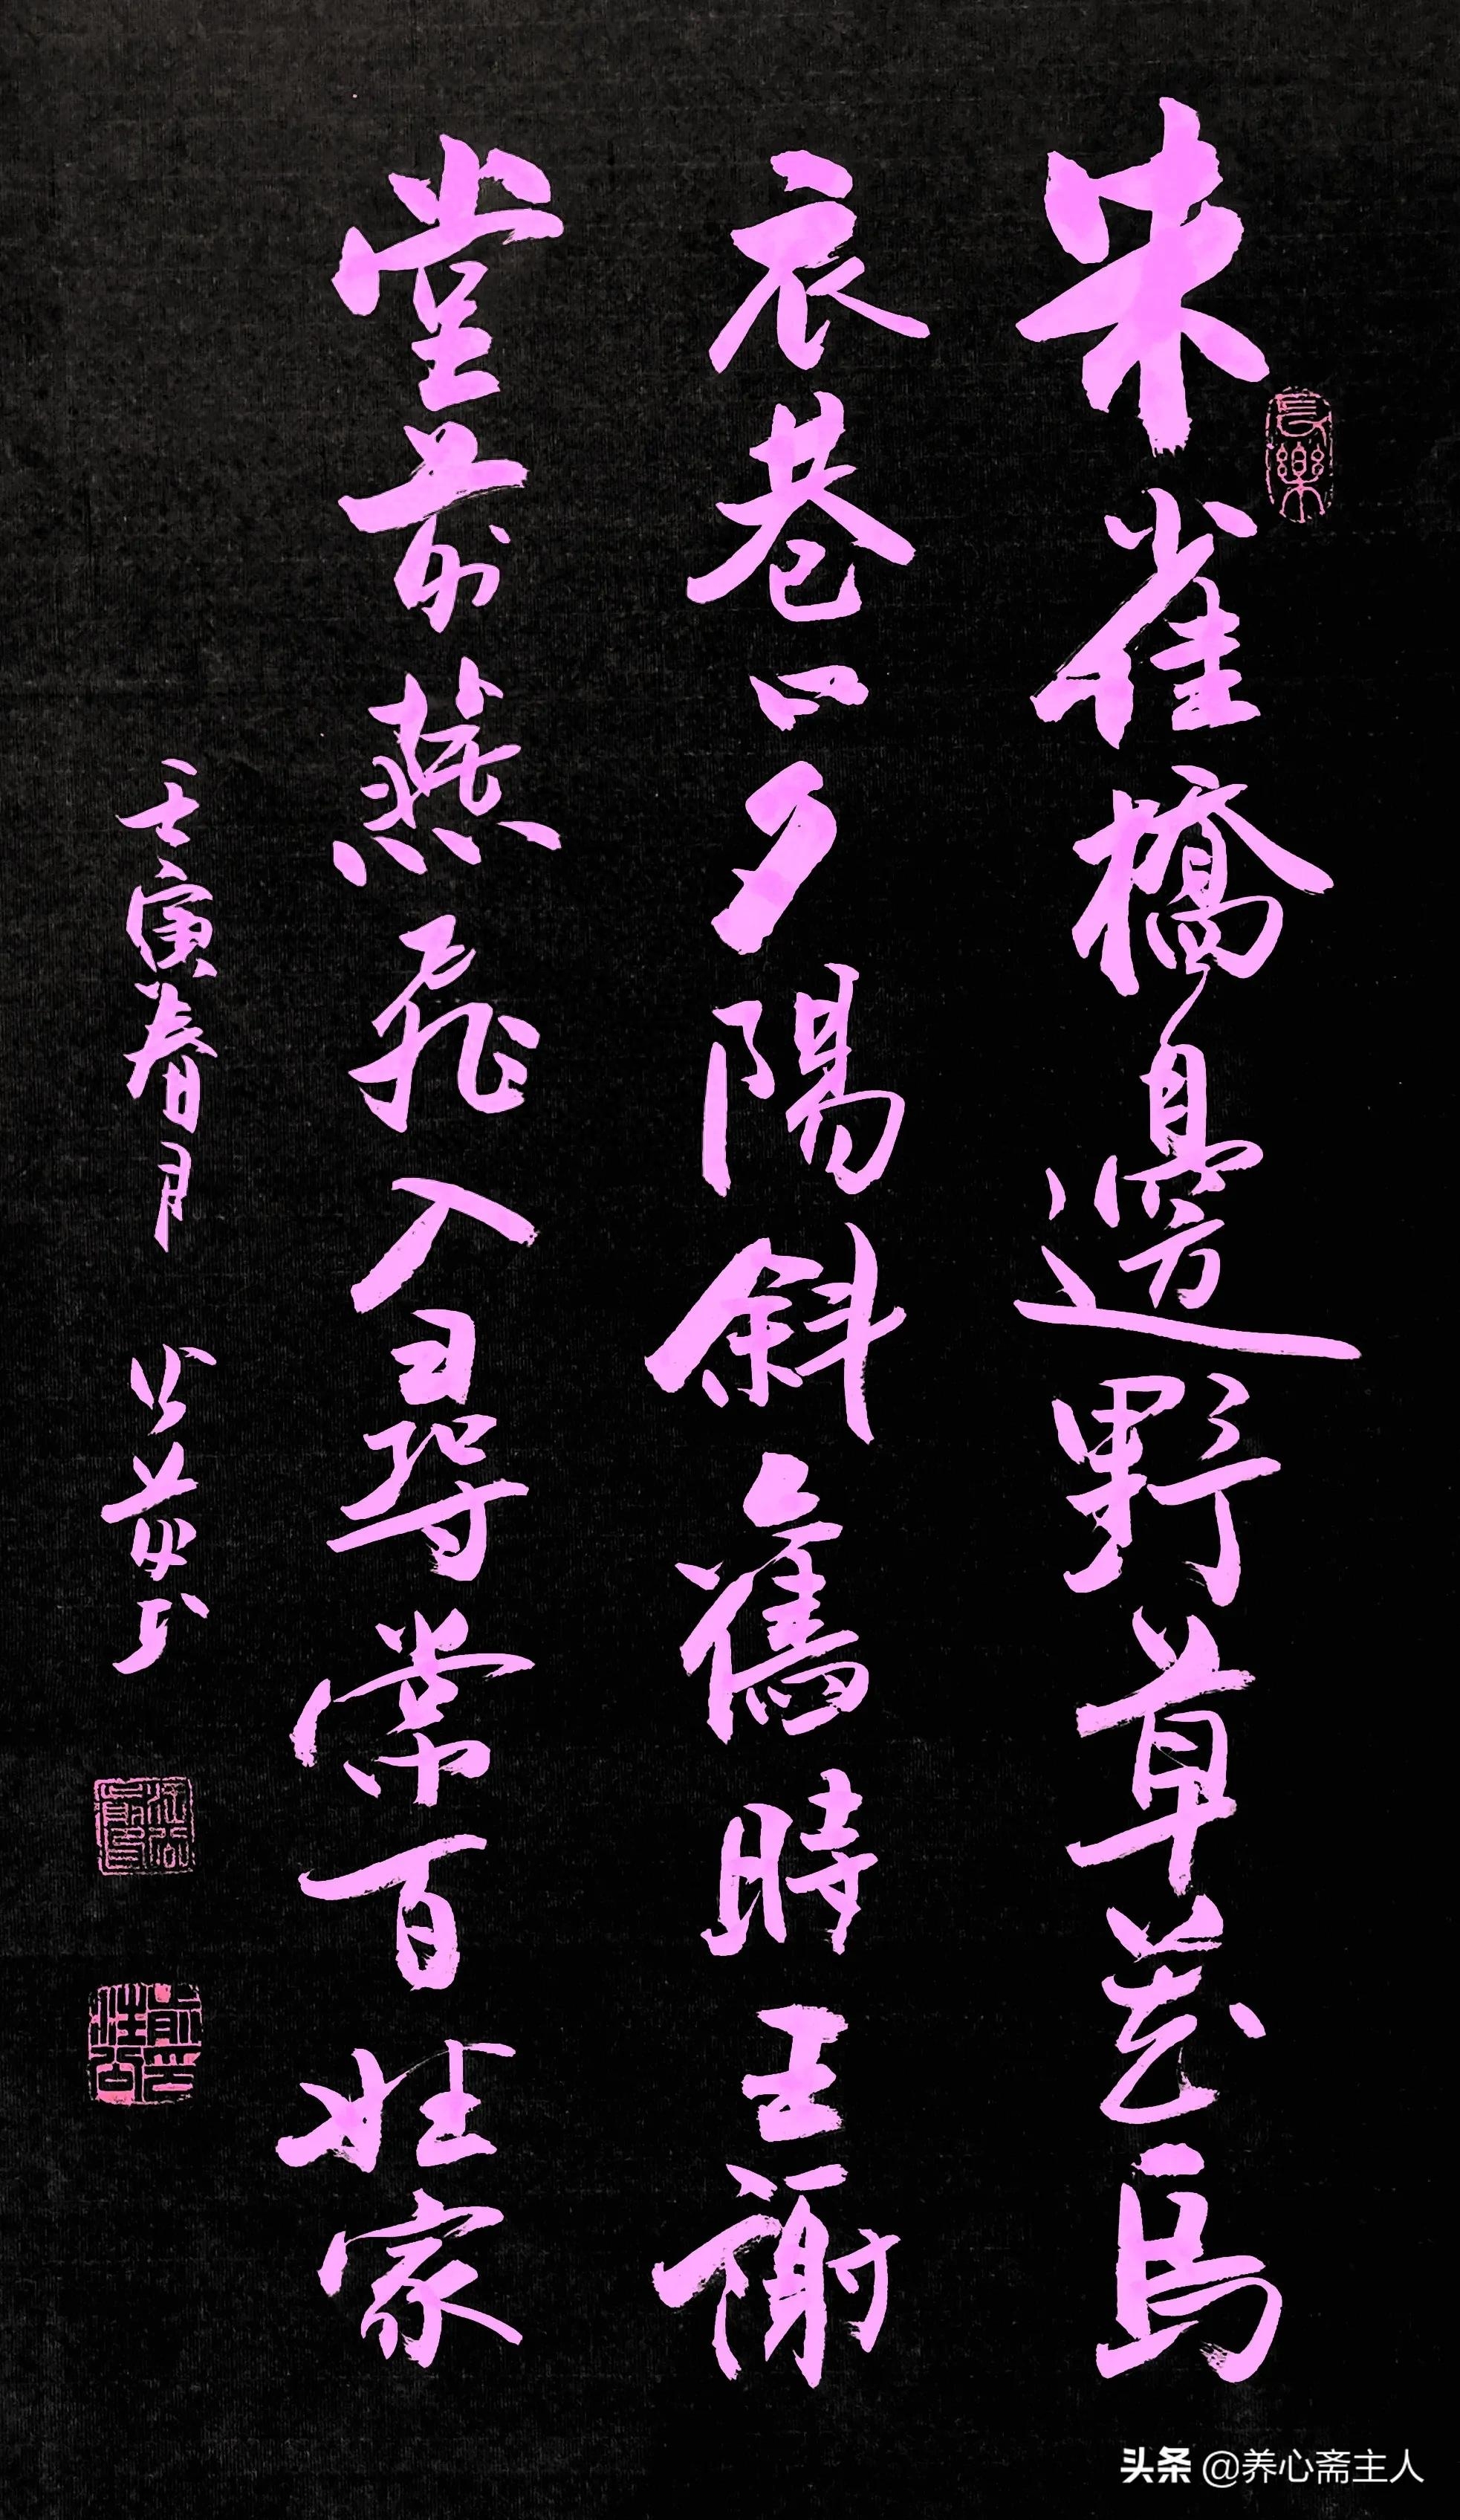 朱雀橋邊野草花烏
衣巷口夕陽斜舊時王謝
堂前燕飛入尋常百姓家
壬寅春月
長樂
头条 @养心斋主人